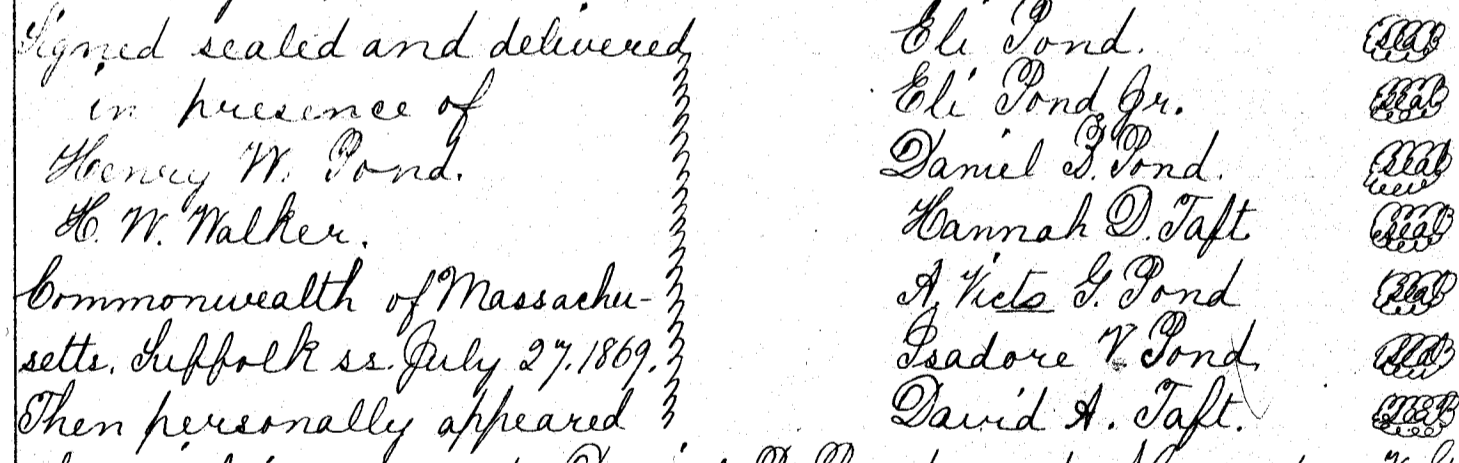 Signed sealed and delivered
in presence of
Henry W. Pond.
H. W. Walker.
Commonwealth of Massachu-
setts. Suffolk ss. July 27. 1869.
Then personally appeared
Eli Pond. seal
Eli Pond Jr. seal
Daniel B. Pond. seal
Hannah D. Taft seal
A. Victs G. Pond seal
Isadore V. Pond seal
David A. Taft. seal